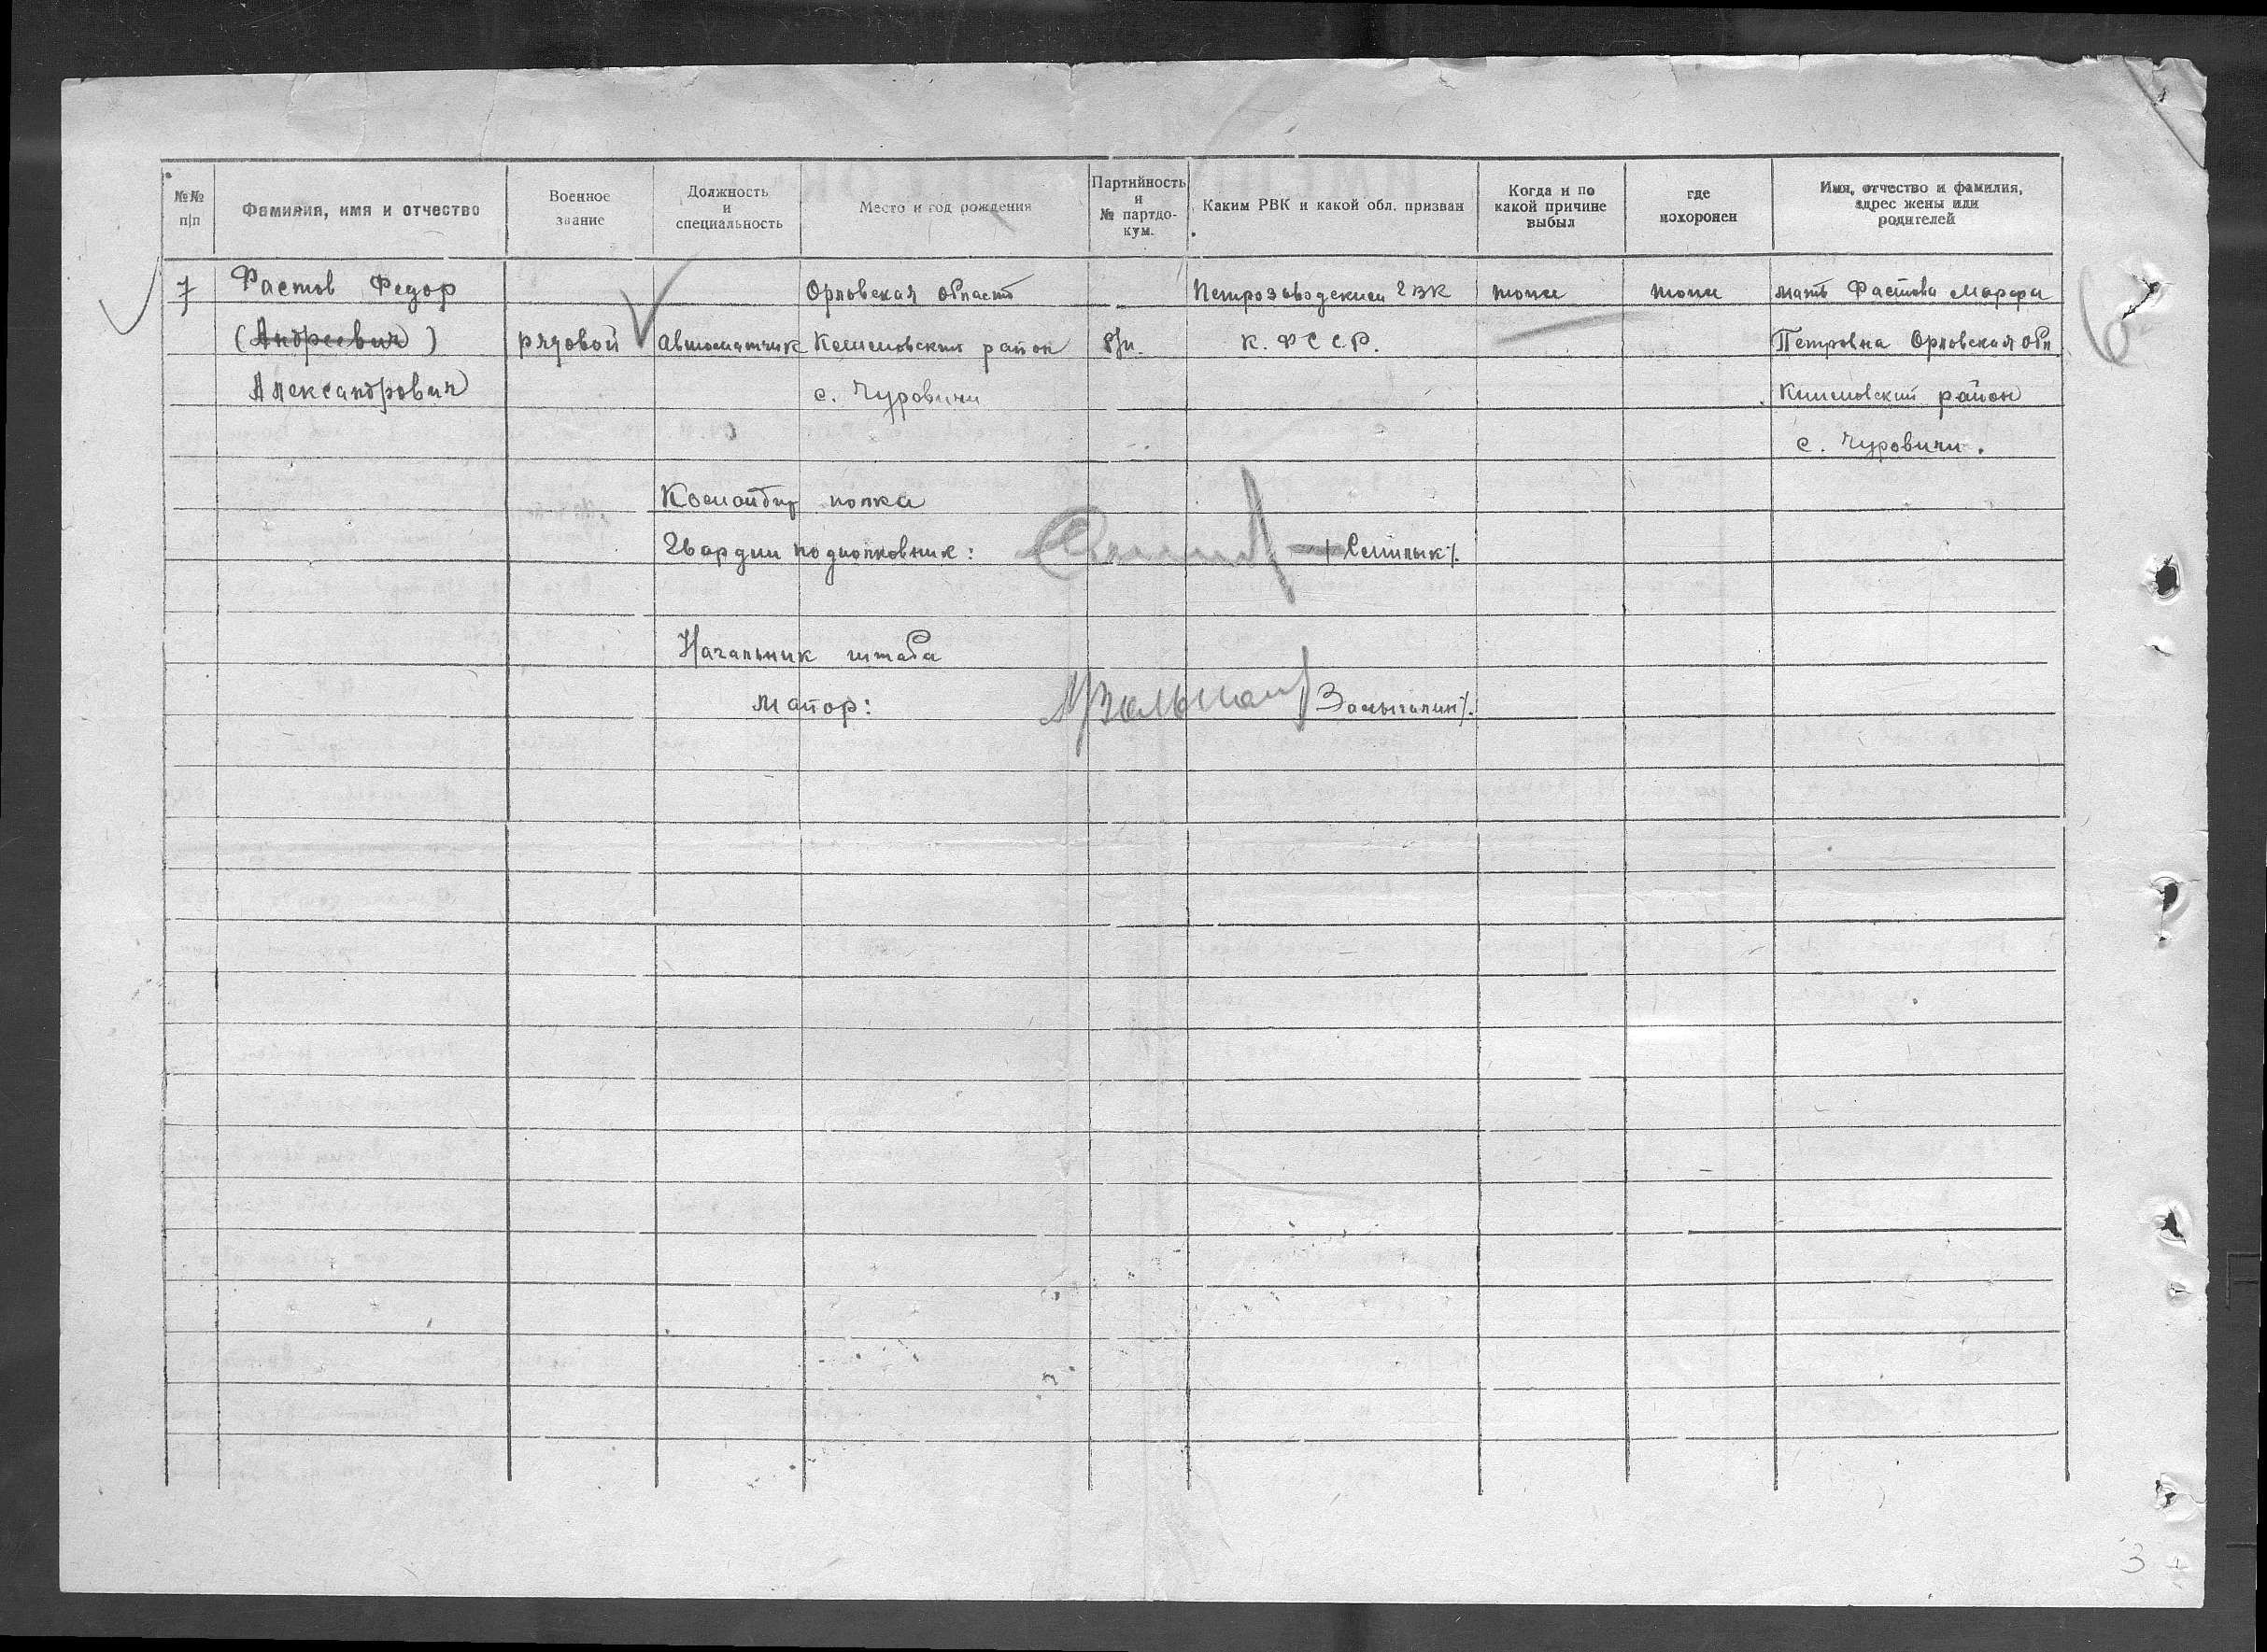 №№ п/п
Фамилия, имя и отчество
Военное звание
Должность и специальность
Место и год рождения
Партийность и № партдокум.
Каким РВК и какой обл. призван
Когда и по какой причине выбыл
где похоронен
Имя, отчество и фамилия, адрес жены или родителей
7 Фастов Федор Орловская область Петрозаводским ГВК тоже тоже мать Фастова Марфа
(Андреевич) рядовой автоматчик район б/п. К.ФССР. Петровна Орловская обл
Александрович с. Чуровичи район
с. Чуровичи.
Командир полка
Гвардии подполковник:
Начальник штаба
майор:
6
3